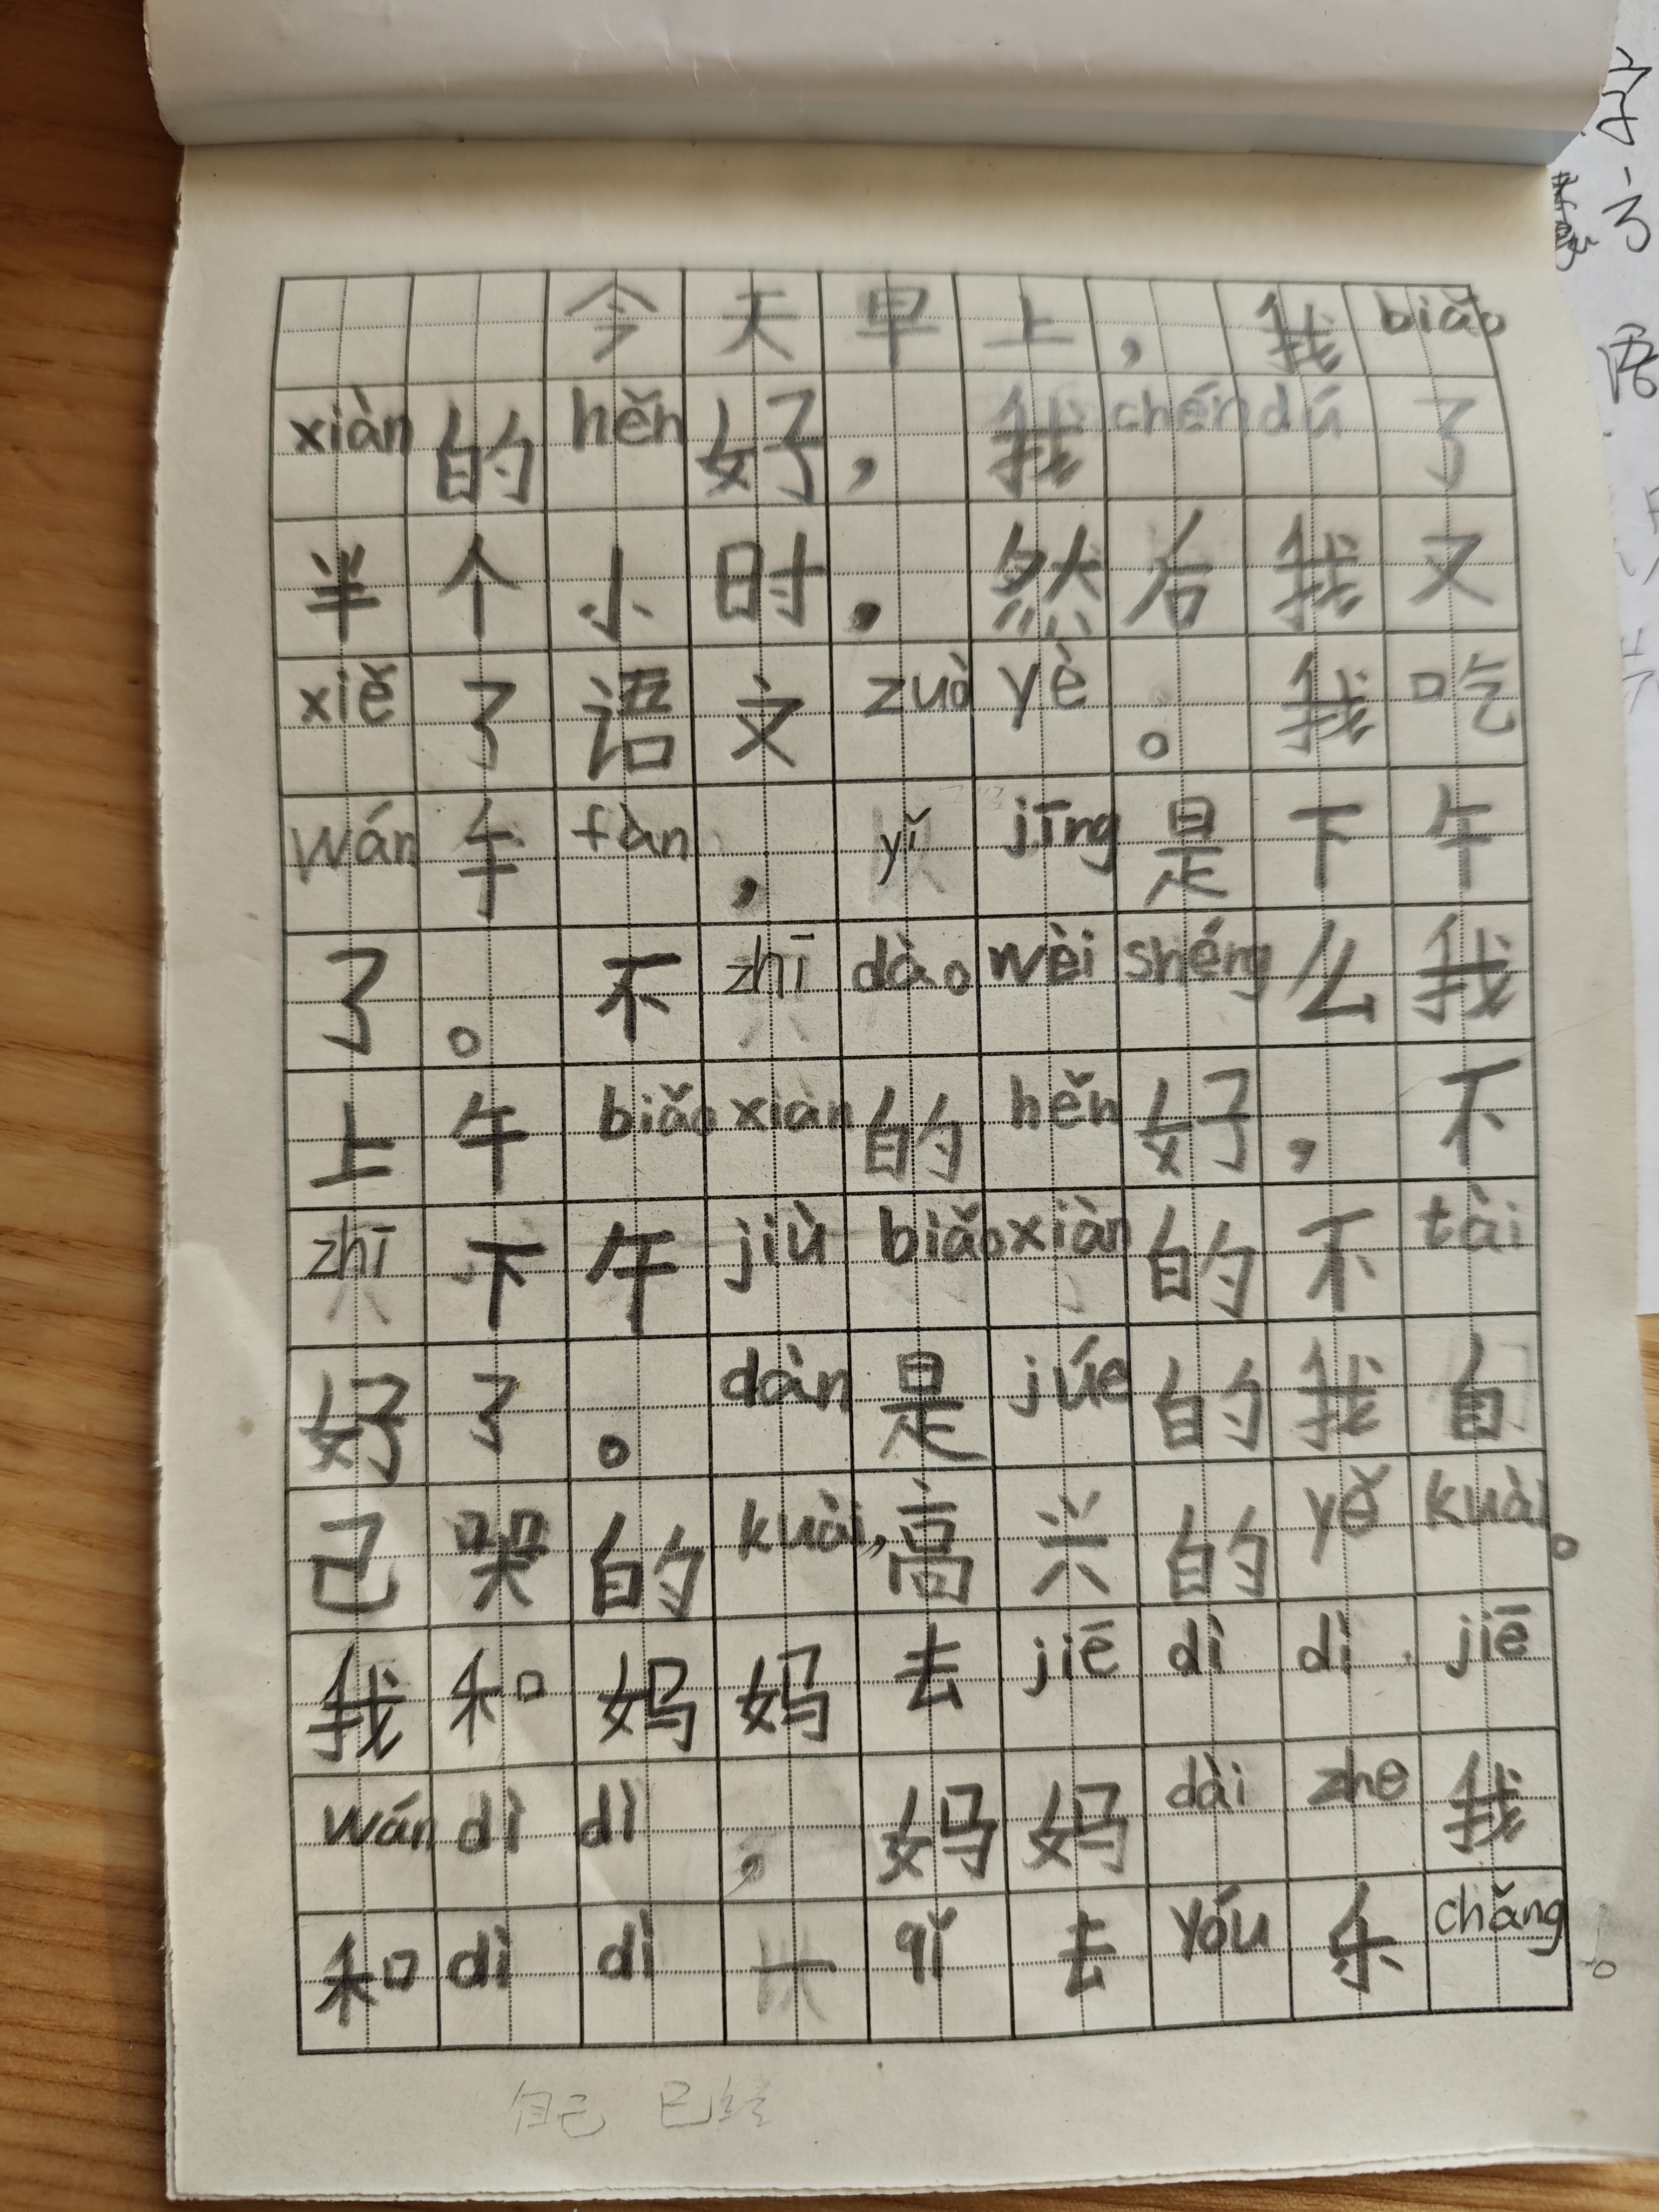 今天早上，我biǎo
xiàn的hěn好，我chéndú了
半个小时。然后我又
xiě了语文zuòyè。我吃
wán午fàn，yǐjīng是下午
了。不zhīdàowèishéng么我
上午biǎoxiàn的hěn好，不
zhī下午jiùbiǎoxiàn的不tài
好了。dàn是júe的我自
己哭的kuài，高兴的yěkuài。
我和妈妈去jiēdìdì.jiē
wándìdì，妈妈dàizhe我
和dìdì一qǐ去yóu乐chǎng。
自己 已经